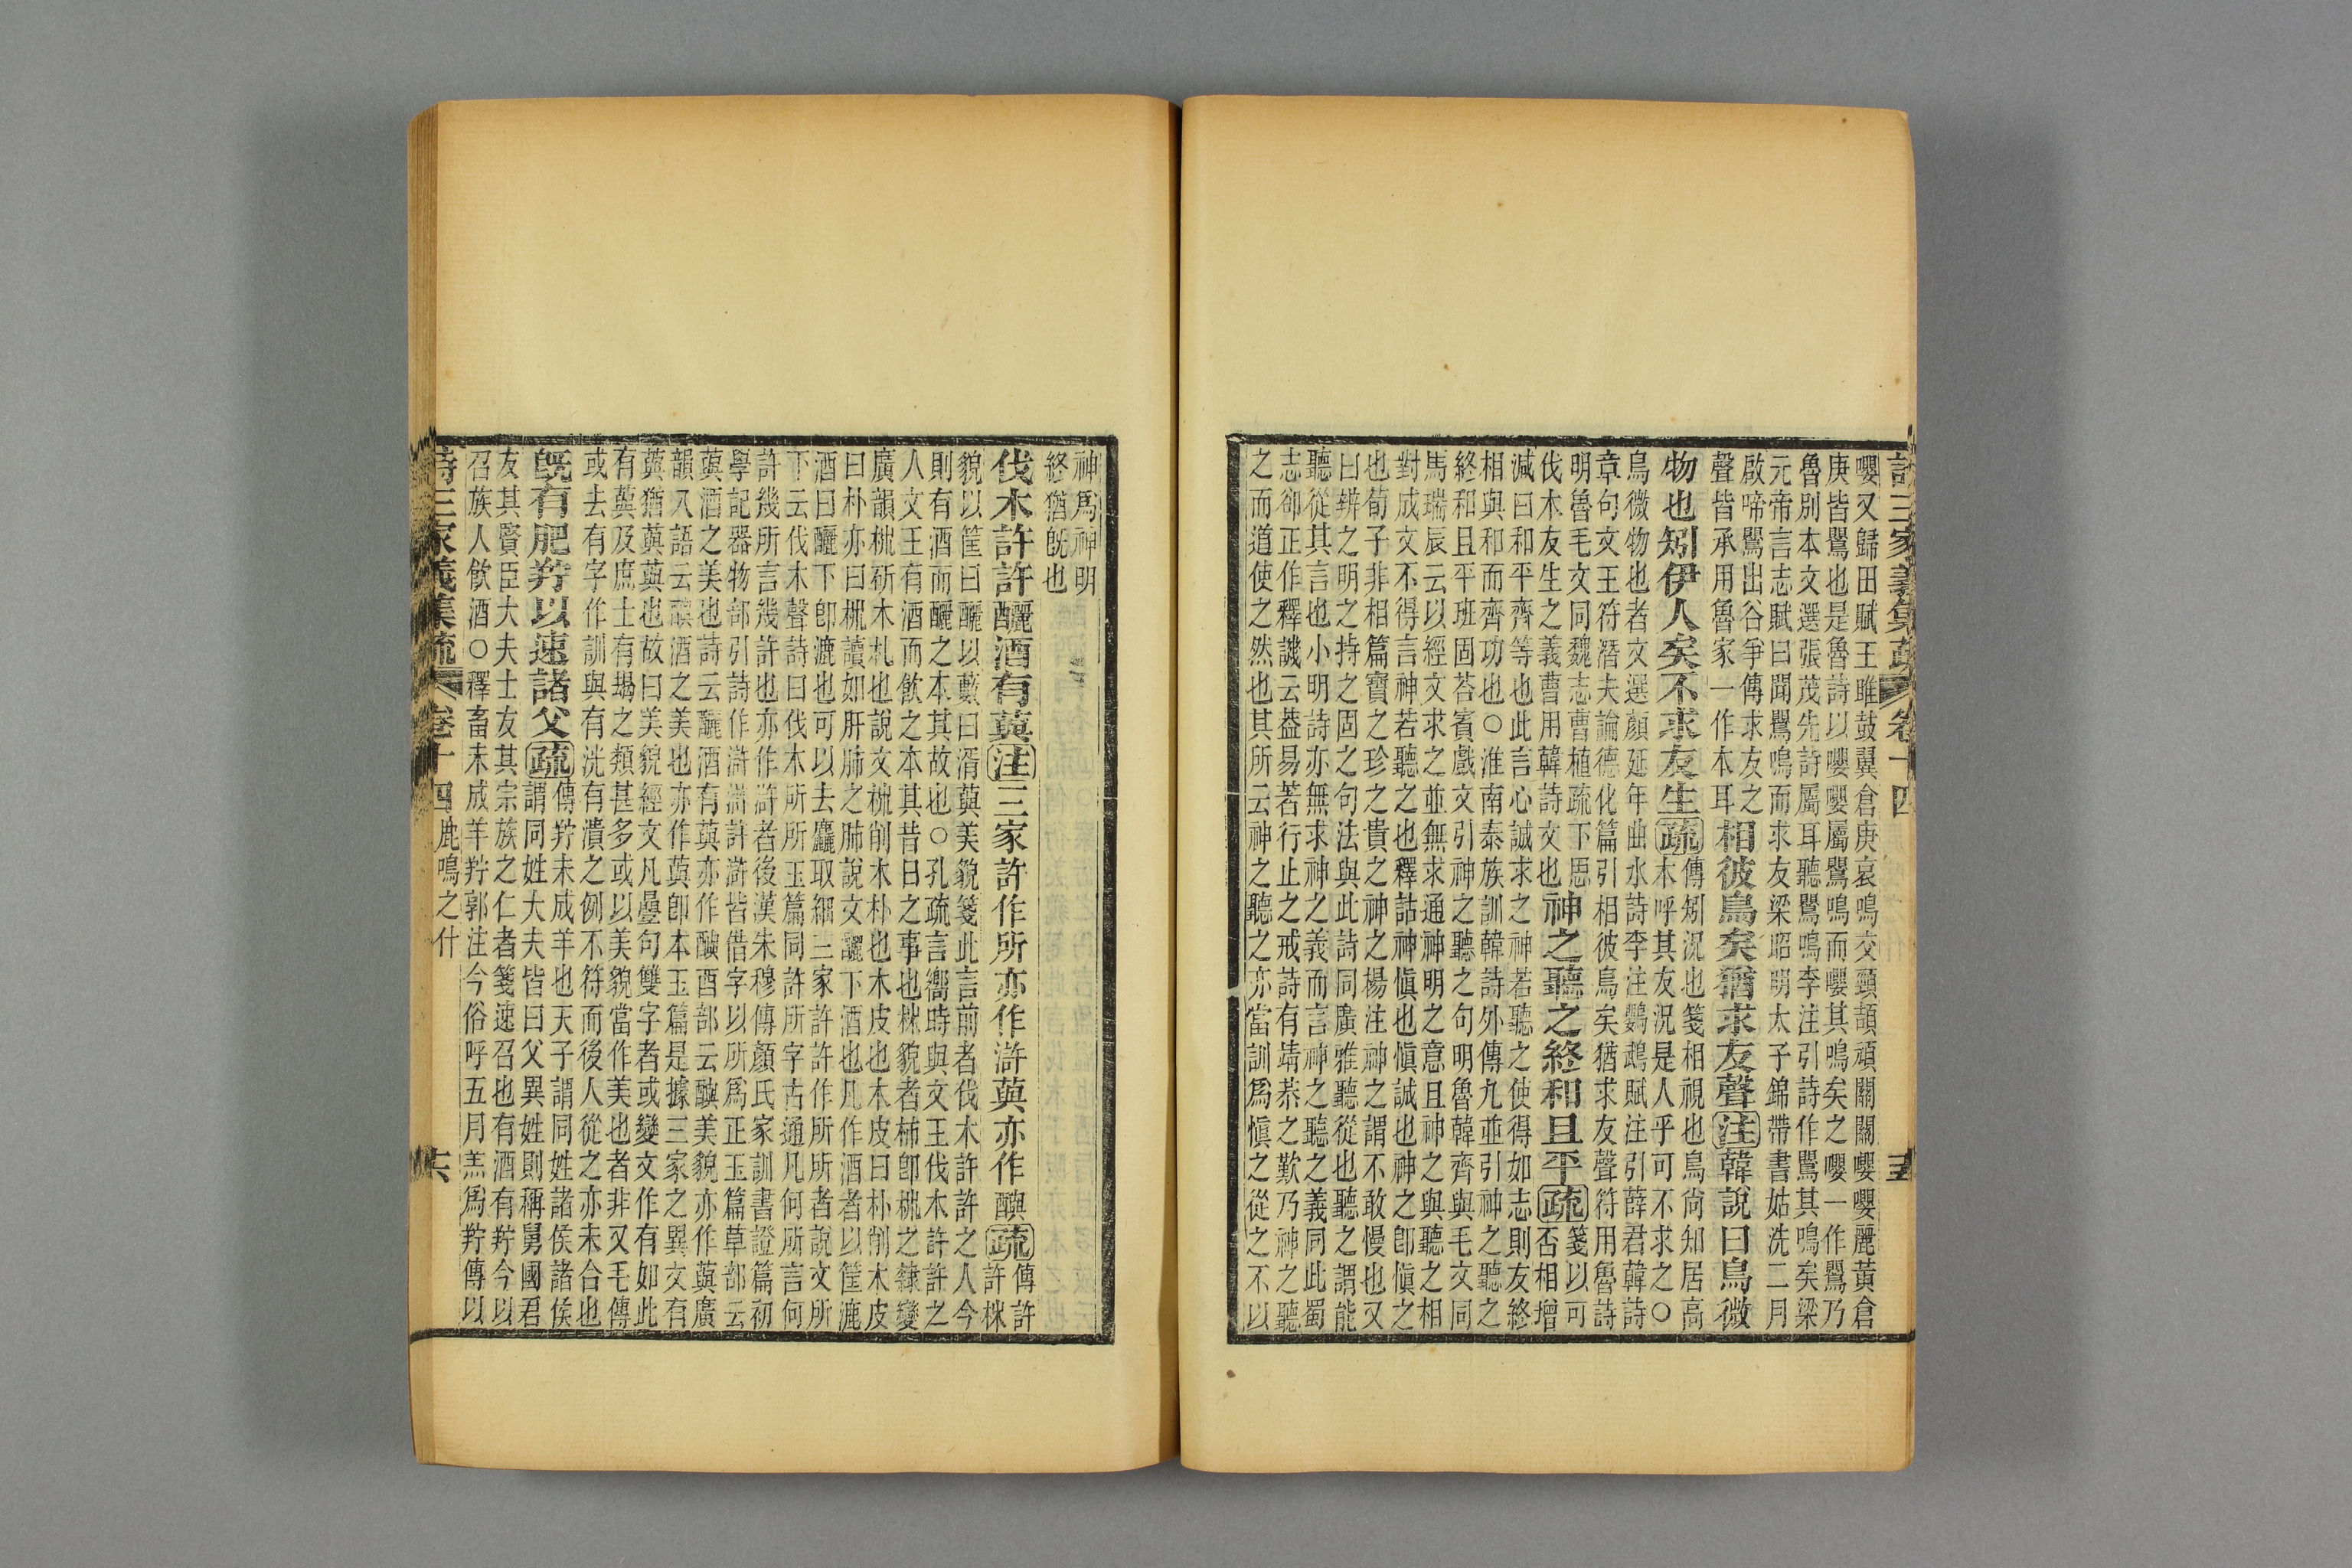 詩三家義集疏 卷十四 五
嚶又歸田賦王雎鼓翼倉庚哀鳴交頸頡頏關關嚶嚶麗黃倉
庚皆鸎也是魯詩以嚶嚶屬鸎鳴而嚶其鳴矣之嚶一作鸎乃
魯別本文選張茂先詩屬耳聽鸎鳴李注引詩作鸎其鳴矣梁
元帝言志賦曰聞鸎鳴而求友梁昭明太子錦帶書姑洗二月
啟啼鸎出谷爭傳求友之
聲皆承用魯家一作本耳
相彼鳥矣猶求友聲注韓說曰鳥微
物也矧伊人矣不求友生疏
傳矧況也箋相視也鳥尙知居高
木呼其友況是人乎可不求之○
鳥微物也者文選顏延年曲水詩李注鸚鵡賦注引薛君韓詩
章句文王符潛夫論德化篇引相彼鳥矣猶求友聲符用魯詩
明魯毛文同魏志曹植疏下思
伐木友生之義曹用韓詩文也
神之聽之終和且平疏
箋以可
否相增
減曰和平齊等也此言心誠求之神若聽之使得如志則友終
相與和而齊功也○淮南泰族訓韓詩外傳九並引神之聽之
終和且平班固荅賓戲文引神之聽之句明魯韓齊與毛文同
馬瑞辰云以經文求之並無求通神明之意且神之與聽之相
對成文不得言神若聽之也釋詁神愼也愼誠也神之卽愼之
也荀子非相篇寶之珍之貴之神之楊注神之謂不敢慢也又
曰辨之明之持之固之句法與此詩同廣雅聽從也聽之謂能
聽從其言也小明詩亦無求神之義而言神之聽之義同此蜀
志卻正作釋譏云葢易若行止之戒詩有靖恭之歎乃神之聽
之而道使之然也其所云神之聽之亦當訓爲愼之從之不以
神爲神明
終猶旣也
伐木許許釃酒有藇注三家許作所亦作滸藇亦作醧疏
傳許
許柹
貌以筐曰釃以藪曰湑藇美貌箋此言前者伐木許許之人今
則有酒而釃之本其故也○孔疏言嚮時與文王伐木許許之
人文王有酒而飮之本其昔日之事也柹貌者柿卽桃之隸變
廣韻桃斫木札也說文桃削木朴也木皮也木皮曰朴削木皮
曰朴亦曰桃讀如肝肺之肺說文釃下酒也凡作酒者以筐漉
酒曰釃下卽漉也可以去麤取細三家許許作所所者說文所
下云伐木聲詩曰伐木所所玉篇同許所字古通凡何所言何
許幾所言幾許也亦作滸者後漢朱穆傳顏氏家訓書證篇初
學記器物部引詩作滸滸許滸皆借字以所爲正玉篇草部云
藇酒之美也詩云釃酒有藇亦作醧酉部云醧美貌亦作藇廣
韻入語云醧酒之美也亦作藇卽本玉篇是據三家之異文有
藇猶藇藇也故曰美貌經文凡疊句雙字者或變文作有如此
有藇及庶士有朅之類甚多或以美貌當作美也者非又毛傳
或去有字作訓與有洸有潰之例不符而後人從之亦未合也
旣有肥羜以速諸父疏
傳羜未成羊也天子謂同姓諸侯諸侯
謂同姓大夫皆曰父異姓則稱舅國君
友其賢臣大夫士友其宗族之仁者箋速召也有酒有羜今以
召族人飮酒○釋畜未成羊羜郭注今俗呼五月羔爲羜傳以
詩三家義集疏 卷十四 鹿鳴之什 六